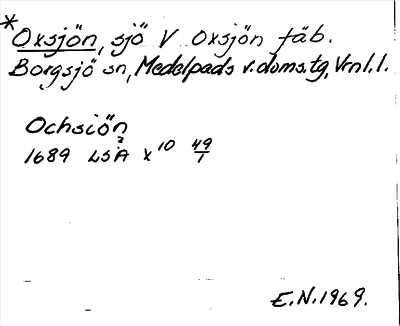 *Oxsjön, sjö V Oxsjön fäb.
Borgsjö sn, Medelpads v. doms. tg, Vrnl. l.
Ochsiön
1689 LSA x¹⁰ 49/1
E.N. 1969.